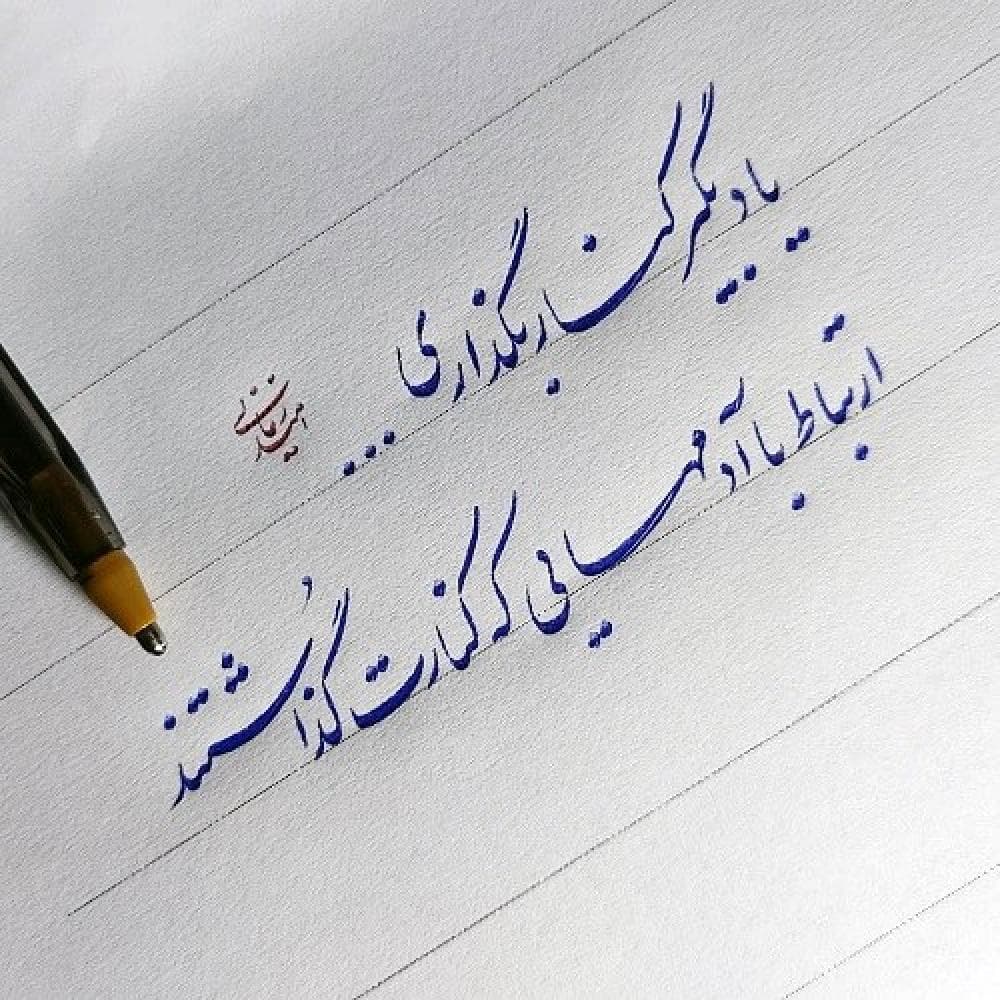 یاد بگیر کنار بگذاری
...
ارتباط با آدمهایی که کنارت گذاشتند